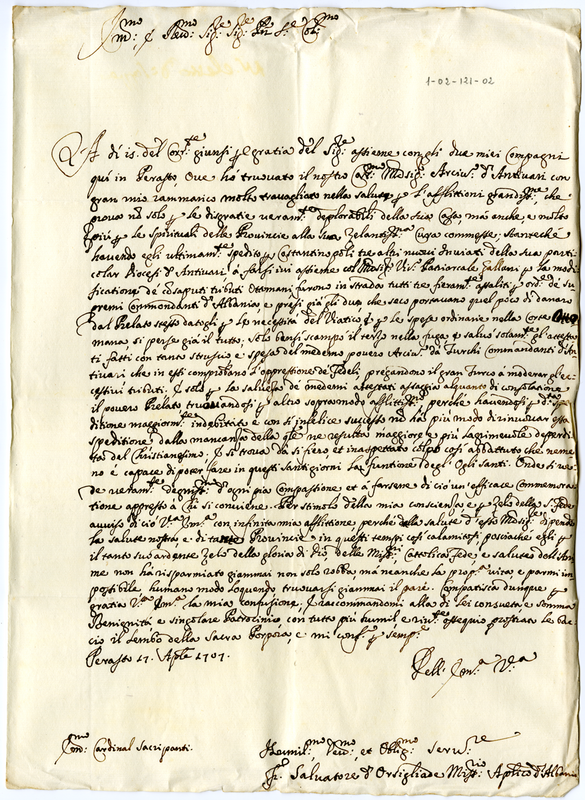 Em̃o: e Reṽmo Sig.re Sig.re Pñ S.e Col.mo
1-02-121-02
A di 15. del Corr.te giunsi p gratia del Sig.re assieme con gli due miei Compagni
quì in Perasto, Ove hò truovato il nostro Mõsig.r Arciv.o d'Antivari con
gran mio rammarico molto travagliato nella salute p l'afflittioni grandiss.me che
prova nõ solo p le disgratie veram.te deplorabili della sua Casa, mà anche, e molto
più p le spirituali delle Provincie alla sua Zelantiss.ma Cura commesse;
havendo egli ultimam.te spedito p Costantinopoli trè altri nuovi Inviati della sua parti
colar Diocesi d'Antivari à farsi ivi assieme col Mõsig.r Vic.o Patriarcale Gallani p la mode
ficatione de cõsaputi tributi Ottomani furono in strada tutti trè assaliti p ord.e de Su
premi Commandanti d'Albania, e presi già gli dui che seco portavano quel poco di danaro
dal Prelato stesso datogli p la necessità del Viatico e p le spese ordinarie nella Corte Otto
mana, si perse già il tutto, solo bensì scampò il terzo nella fuga e salvò solam.te gl'attesta
ti fatti con tanto strusio e spesa del medemo povero Arciv.o da Turchi Commandanti d'An
tivari che in essi comprobano l'oppressione de Fedeli, pregandono il gran Turco à moderar gl'ec
cessivi tributi. E solo p la salvezza de medemi attestati assaggia alquanto di consolatione
il povero Prelato truovandosi p altro sopramodo afflittiss.o perche havendosi p d.a spe
ditione maggiorm.te indebitato e con sì infelice successo nõ hà più modo di rinuovar essa
speditione dalla mancanza della q̃le ne resulta maggiore e più lagrimevole deperdi
ta del Christianesimo; E si trova da sì fiero et inaspettato colpo così abbattuto che neme
no è capace di poter fare in questi santi giorni la funtione degl'Ogli Santi. Onde si ve
de veram.te degniss.o d'ogni pia compassione et à farsene di ciò un'efficace commemora
tione appresso à chi si conviene. Per stimolo della mia conscienza e p Zelo della S. Fede
avviso di ciò V.ra Em.za con infinita mia afflittione perche dalla salute d'esso Mõsig.r dipende
la salute nostra e di tante Provincie in questi tempi così calamitosi posciache egli p
il tanto suo ardente Zelo della gloria di Dio delle Miss.ni, Cattolica Fede e salute dell'Ani
me non hà risparmiato giammai non solo robba, mà neanche la prop.a vita e parmi im
possibile humano modo loquendo truovarsi giammai il pare. Compatisca dunque p
gratia V.ra Em.za la mia confusione, e raccommandomi alla di Lei consueta, e somma
Benignità e singolare Patrocinio, con tutto più humil e riv.te ossequio prostrato le ba
cio il Lembo della Sacra Porpora, e mi conf.o p semp.e
Perasto 17. Aple 1707.
Dell' Em.za V.ra
Em̃o Cardinal Sacripanti.
Humil.mo Dev.mo et Oblig.mo Serv.re
Fr. Salvatore d'Orsigliade Miss.rio Aplico d'Albania